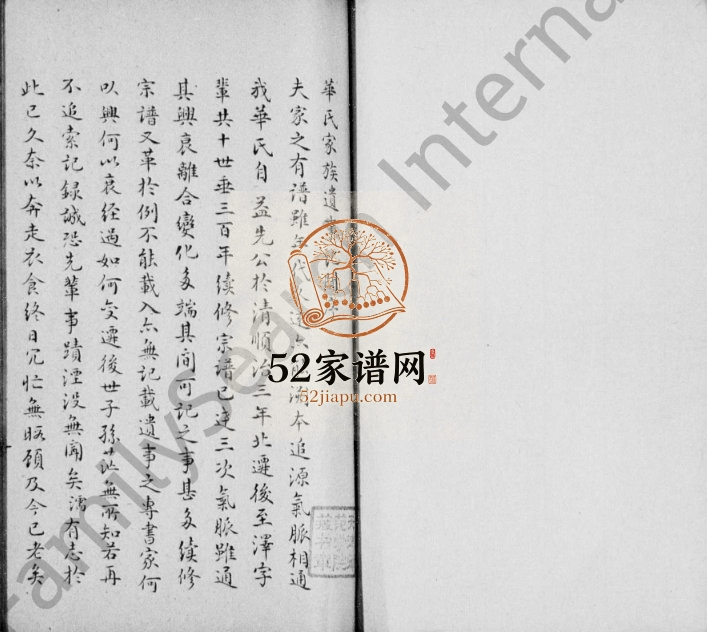 華氏家族遺
夫家之有譜雖年代 本追源氣脈相通
我華氏自益先公於清順治三年北遷後至澤字
輩共十世垂三百年續修宗譜已逹三次氣脈雖通
其興衰離合變化多端其间可記之事甚多續修
宗譜又革於例不能載入亦無記載遺事之專書家何
以興何以衰经過如何变遷後世子孫茫無所知若再
不追索記録誠恐先輩事蹟湮没無闻矣濡有志於
此已久奈以奔走衣食終日冗忙無暇顧及今已老矣
52家谱网
52jiapu.com
FamilySearch International